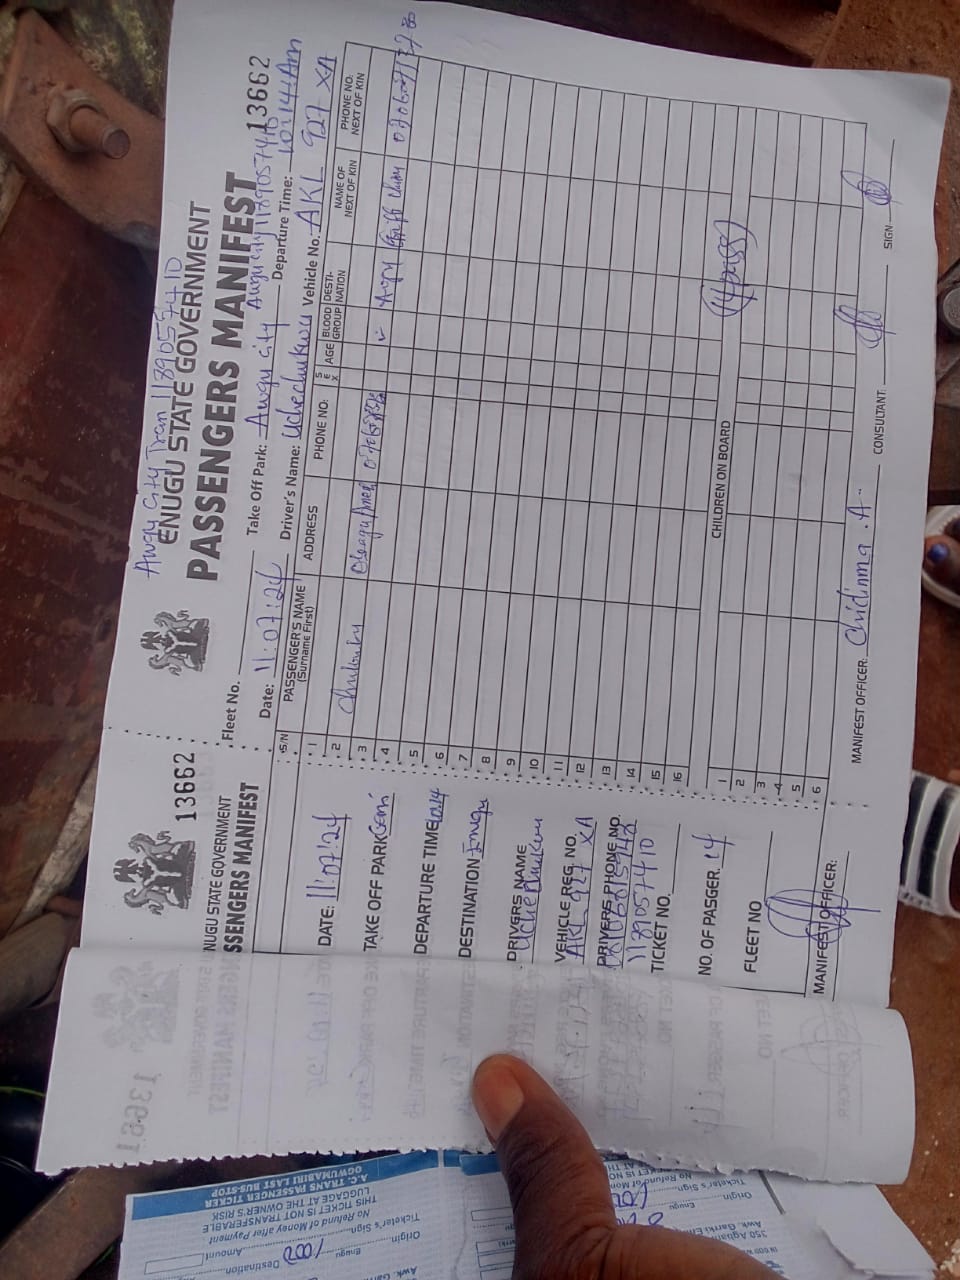 Awgu City Tran 1179057410
ENUGU STATE GOVERNMENT
PASSENGERS MANIFEST
13662
Fleet No.
Take Off Park: Awgu City Awgu City 1179057410
Date: 11:07:24
Departure Time: 10:14 Am
Driver's Name: Uchechukwu Vehicle No. AKL 927 XA
S/N
PASSENGER'S NAME
(Surname First)
ADDRESS
PHONE NO:
SEX
AGE
BLOOD GROUP
DESTI-NATION
NAME OF NEXT OF KIN
PHONE NO. NEXT OF KIN
1
2
3
4
5
6
7
8
9
10
11
12
13
14
15
16
CHILDREN ON BOARD
(14 pass)
1
2
3
4
5
6
MANIFEST OFFICER: Chidinma .A.
CONSULTANT:
SIGN
13662
NUGU STATE GOVERNMENT
SSENGERS MANIFEST
DATE: 11:07:24
TAKE OFF PARK
DEPARTURE TIME 10.14
DESTINATION Enugu
DRIVERS NAME
Uchechukwu
VEHICLE REG. NO.
AKL 927 XA
DRIVERS PHONE NO.
1179057410
TICKET NO.
NO. OF PASGER. 14
FLEET NO
MANIFEST OFFICER:
13661
A.C. TRANS PASSENGER TICKER
OGWUMABIRI LAST BUS-STOP
LUGGAGE AT THE OWNER'S RISK
THIS TICKET IS NOT TRANSFERABLE
No Refund of Money after Payment
Ticketer's Sign.
Amount 1000
Origin
Enugu
Destination
Ticketer's Sign
No Refund of Mon
Origin
Enugu
Awk. Garki